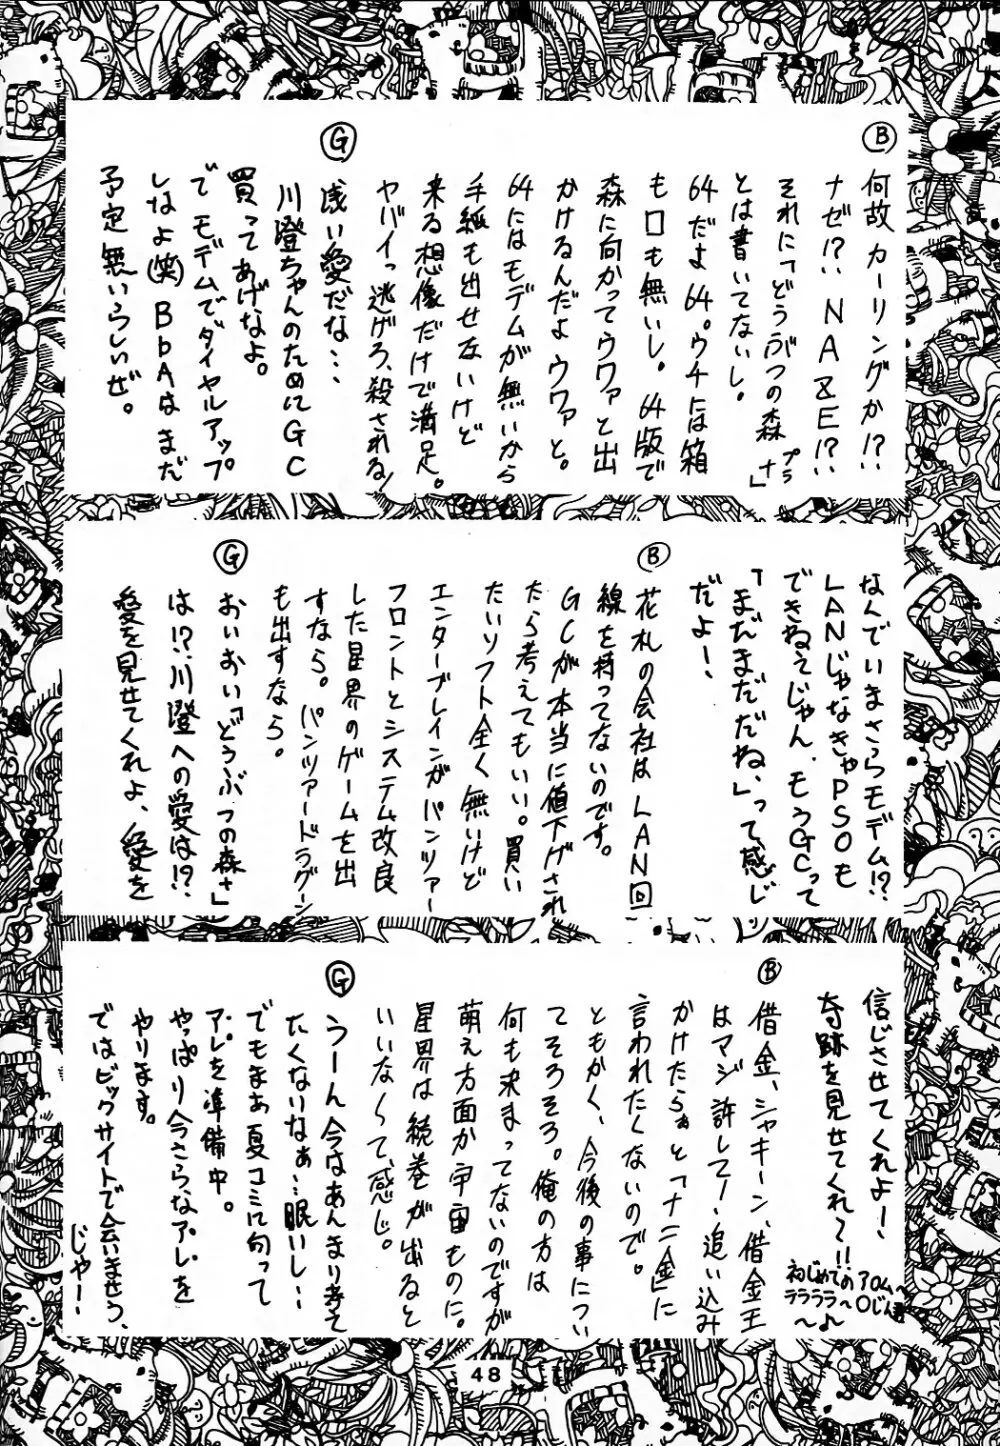 Ⓑ
何故カーリングか!?
ナゼ!?NAZE!?
それに「どうぶつの森プラす」
とは書いてないし。
64だよ64。ウチには箱
も口も無いし。64版で
森に向かってウワァと出
かけるんだよウワァと。
64にはモデムが無いから
手紙も出せないけど
来る想像だけで満足。
ヤバイっ逃げろ、殺される!
Ⓖ
浅い愛だな…
川澄ちゃんのためにGC
買ってあげなよ。
で モデムでダイヤルアップ
しなよ(笑)BbAはまだ
予定無いらしいぜ。
なんでいまさらモデム!?
LANじゃなきゃPSOも
できねえじゃん。もうGCって
「まだまだだね、」って感じ
だよー!
Ⓑ
花札の会社はLAN回
線を持ってないのです。
GCが本当に値下げされ
たら考えてもいい。買い
たいソフト全く無いけど
エンターブレインがパンツァー
フロントとシステム改良
した星界のゲームを出
すなら。パンツァードラグーン
も出すなら。
Ⓖ
おいおい「どうぶつの森+」
は!?川澄への愛は!?
愛を見せてくれよ、愛を
信じさせてくれよー、
奇跡を見せてくれ〜!!
初じめてのアロム〜
ララララ〜♪
Ⓑ
借金、シャキーン、借金王
はマジ許してー!追い込み
かけたらぁと「ナニ金」に
言われたくないので。
ともかく、今後の事につい
てそろそろ。俺の方は
何も決まってないのですが
萌え方面か宇宙ものに。
星界は続巻が出ると
いいなぁって感じ。
Ⓖ
うーん今はあんまり考え
たくないなぁ…眠いし…
でもまぁ夏コミに向って
アレを準備中。
やっぱり今さらなアレを
やります。
ではビックサイトで会いませう、
じゃー!
48